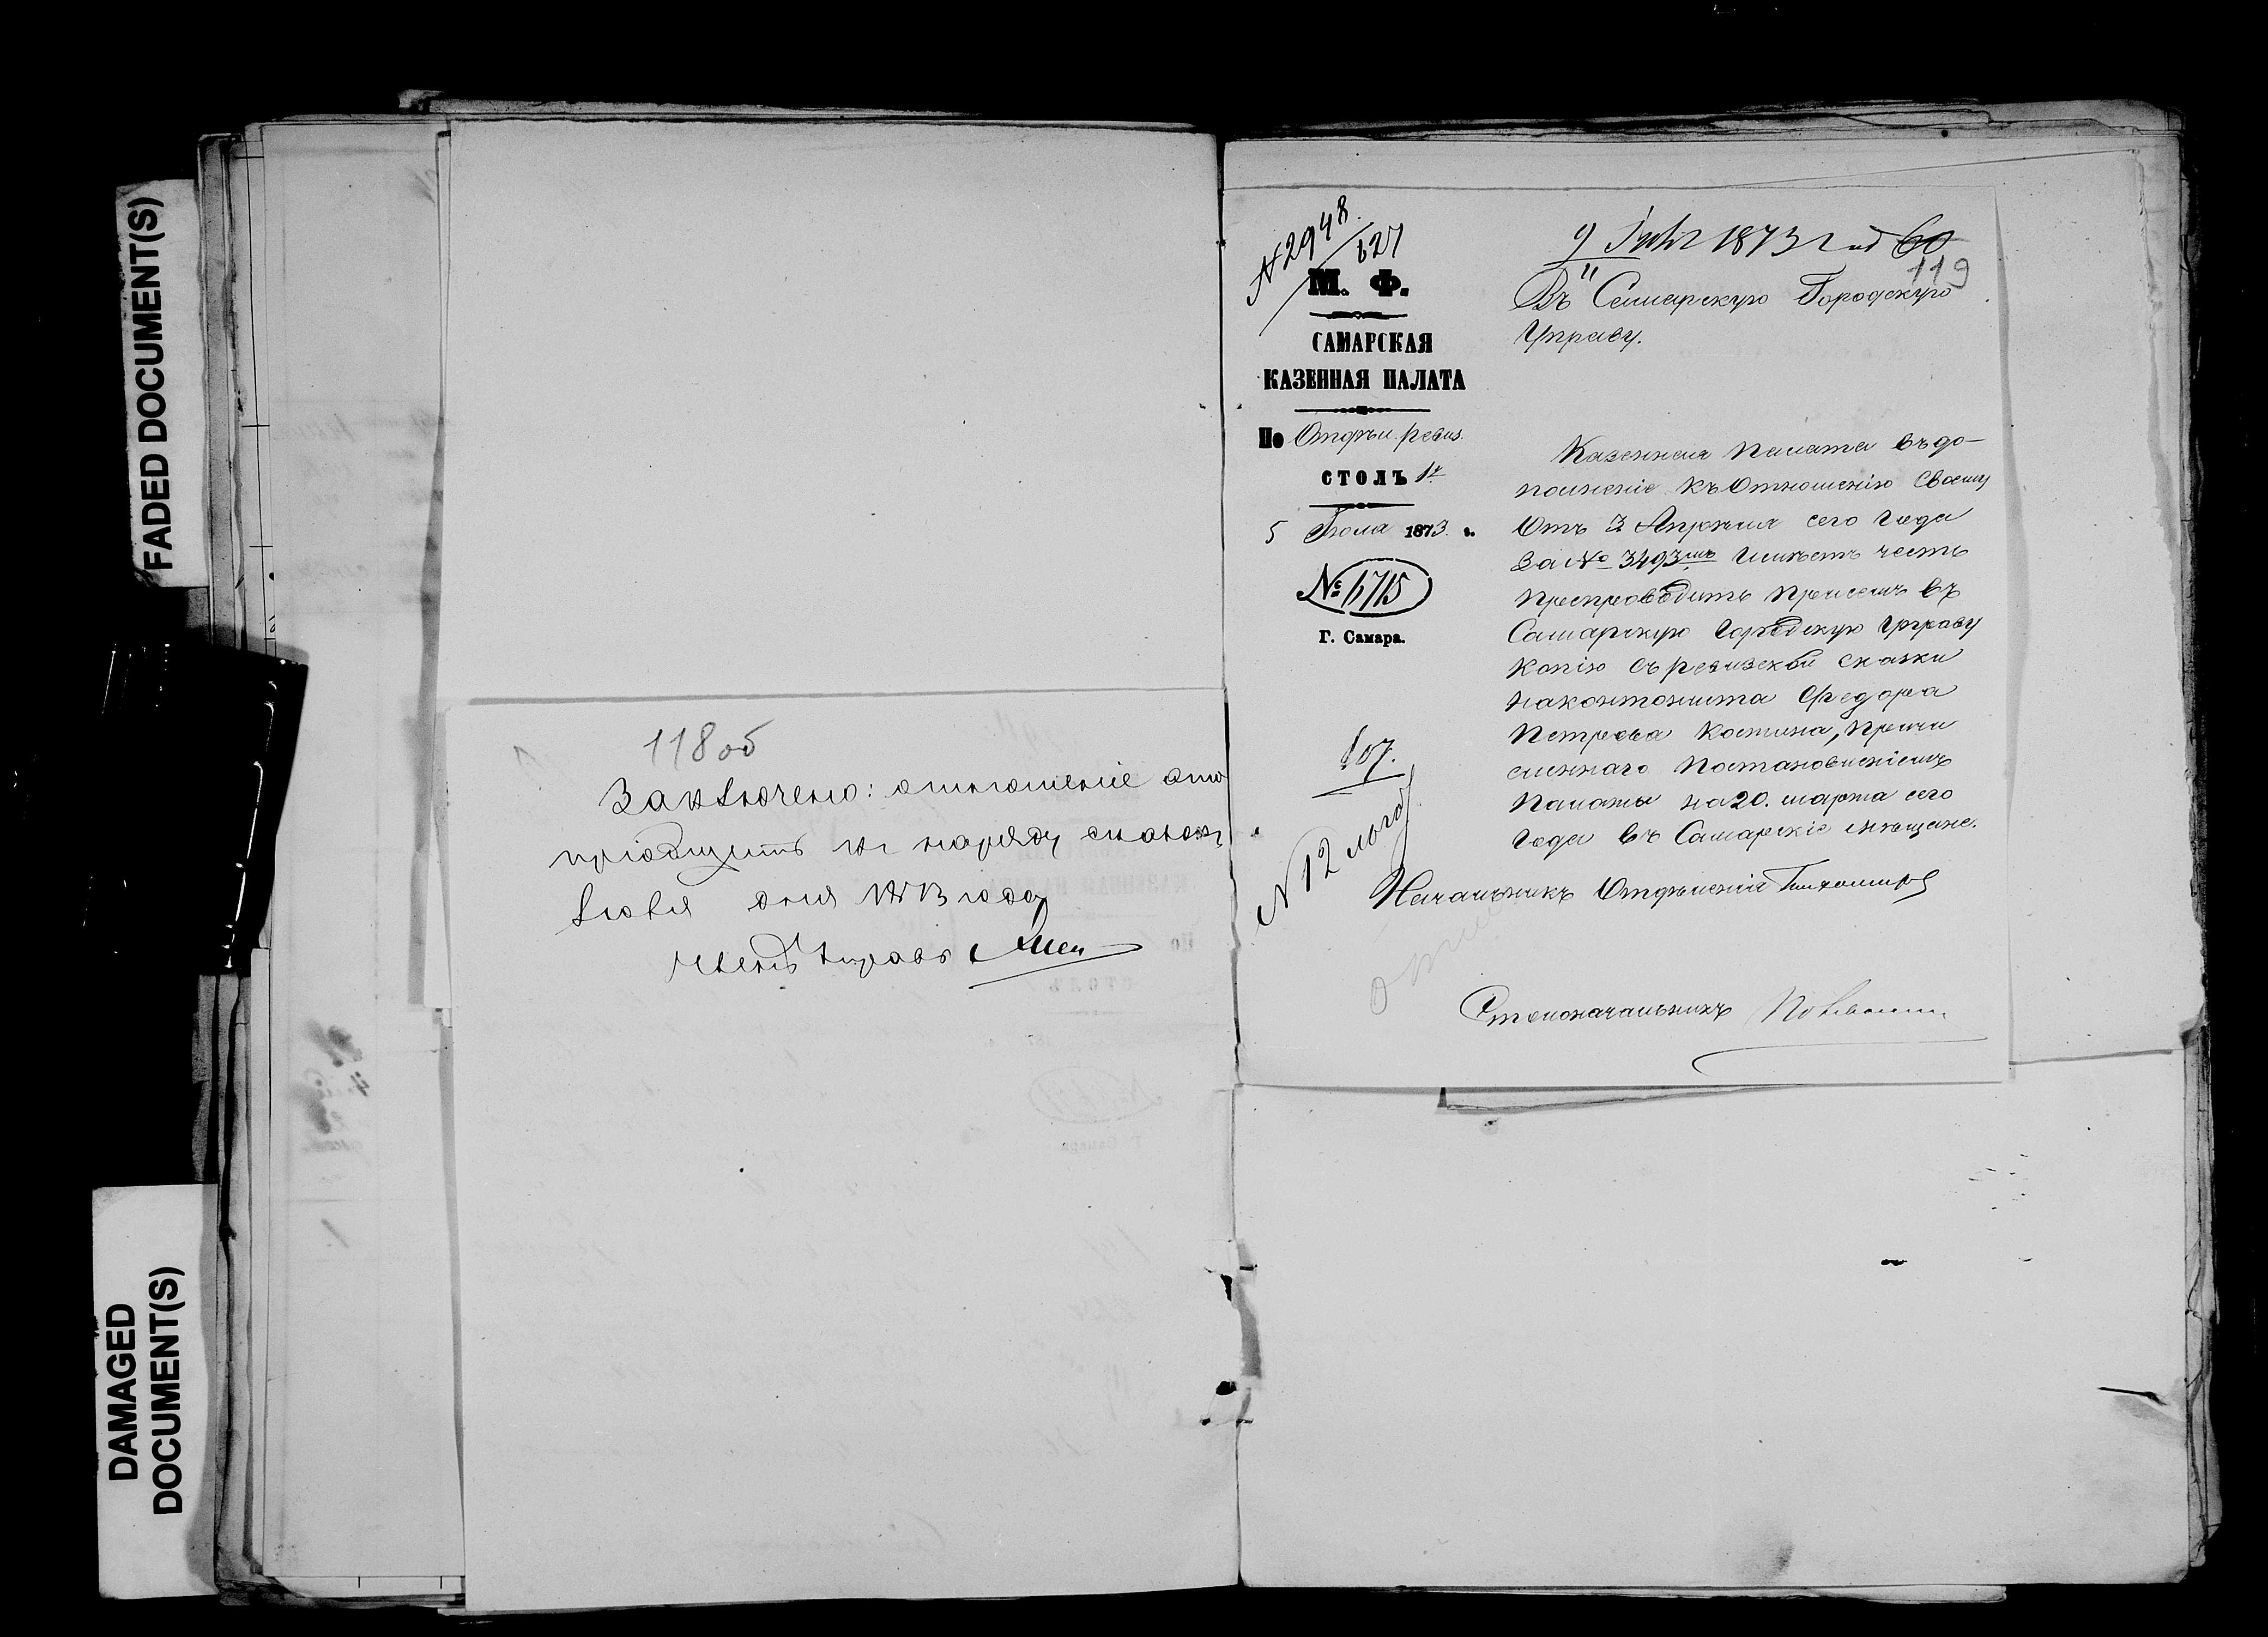 FADED DOCUMENT(S)
DAMAGED
DOCUMENT(S)
118 об
Заключено: отношение это
приобщить къ наряду
Іюля дня 1873 года
Членъ Управы
№ 2948
627
М. Ф.
САМАРСКАЯ
КАЗЕННАЯ ПАЛАТА
По Отдѣл. ревиз.
СТОЛЪ 1й
5 Іюля 1873 г.
№ 6715
Г. Самара.
107.
№ 12
9 Іюля 1873 г
119
Въ Самарскую Городскую
Управу.
Казенная Палата въ до-
полненіе къ Отношенію Своему
Отъ 3 Апрѣля сего Года
За № 3493мъ Имѣетъ честь
Препроводить При семъ въ
Самарскую Городскую Управу
Копію съ ревизской сказки
Федора
Петрова Костина, Причи
сленнаго Постановленіемъ
Палаты на 20. марта сего
Года въ Самарскіе мѣщане.
Начальникъ Отдѣленія Тихомиров
Столоначальникъ